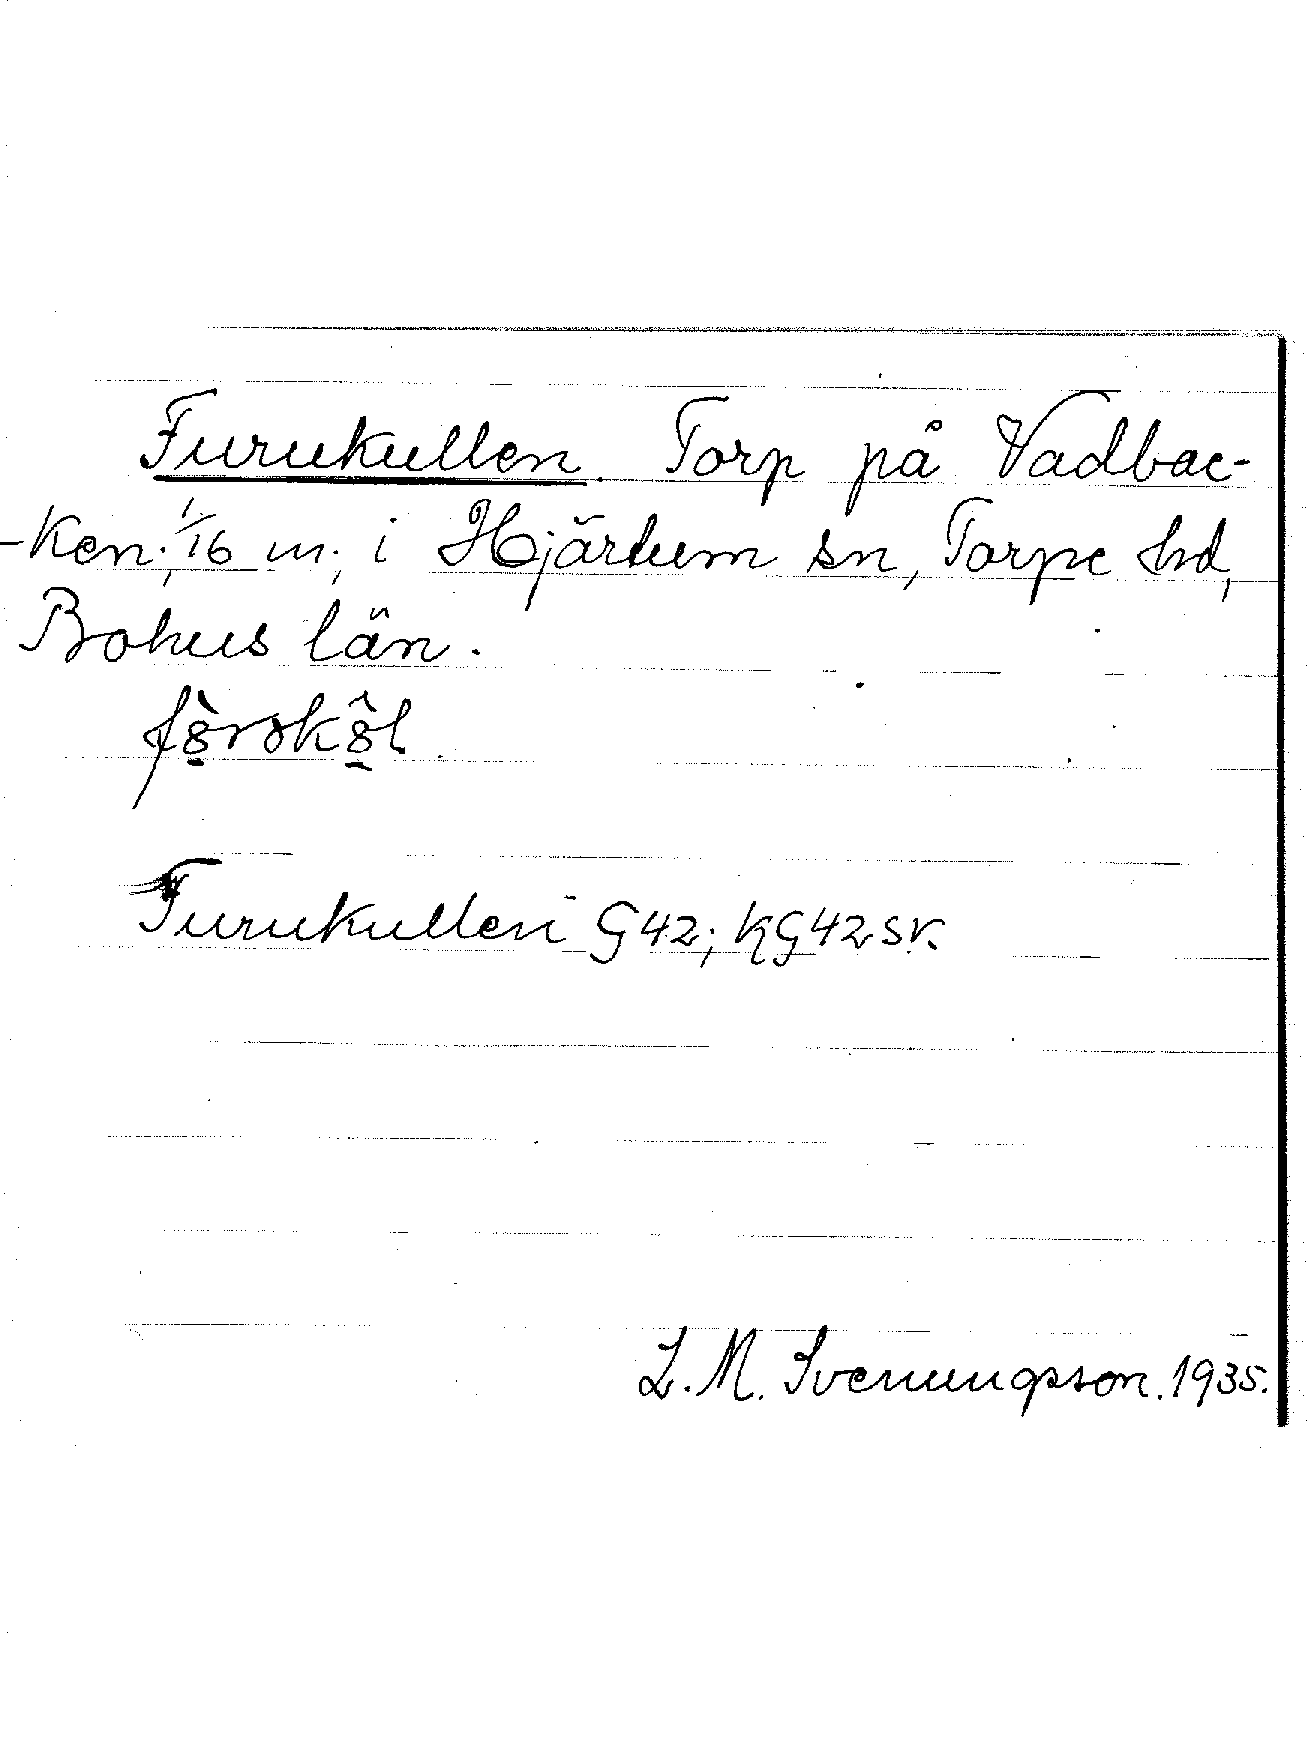 Furukullen. Torp på Vadbac-
-ken; 1/16 m; i Hjärtum sn, Torpe hd,
Bohus län.
Furukullen G42; KG42 sv.
L. M. Svenungsson. 1935.